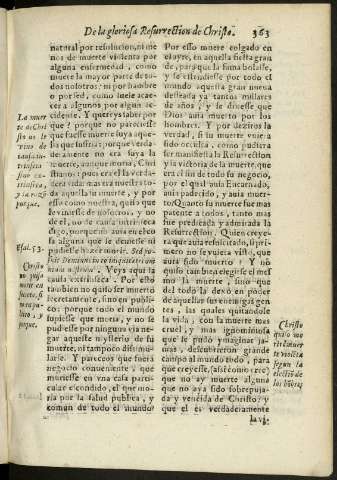 De la gloriosa Resurrection de Christo. 363
natural por resolucion, ni me
nos de muerte violenta por
alguna enfermedad, como
muere la mayor parte de to-
dos nosotros; ni por hambre
o por sed, como suele acae-
cer a algunos por algun ac-
cidente. Y quereys saber por
que? porque no pareciesse
que fuesse muerte suya aque-
lla que sufria; porque verda-
deramente no era suya la
muerte, aunque moria, Chris-
tianos: pues era el la verda-
dera vida: mas era nuestra to-
da aquella muerte, y por
esso como nuestra, quiso que
le viniesse de nosotros, y no
de el, no de causa intrinseca
digo, porque no auia en el co
sa alguna que le deuiesse ni
pudiesse hazer morir. Sed po-
suit Dominus in eo iniquitatem
Veys aqui la
causa extrinseca. Por esto
tambien no quiso ser muerto
secretamente, sino en publi-
co: porque todo el mundo
supiesse que moria, y no se
pudiesse por ninguna via ne-
gar aquesta misterio de su
muerte, ni tampoco dissimu-
larle. Y pareceos que fuera
negocio conueniente, que
muriesse en vna casa parti-
cular e escondido, el que mo
ria por la salud publica, y
comun de todo el mundo?
La muer
te de Chri
sto no le
vino de
causa in-
trinseca,
sino ex-
trinseca,
y la razõ
porque.
Esai. 53.
Christo
no quiso
morir en
secreto, si
no en pu-
blico, y
porque.
Por esso muere colgado en
el ayre, en aquella fiesta gran
de, para que la fama bolasse,
y se estendiesse por todo el
mundo aquesta gran nueua
desseada ya tantos millares
de años, y se dixesse que
Dios auia muerto por los
hombres. Y por deziros la
verdad, si su muerte vuie a
sido oculta, como pudiera
ser manifiesta la Resurrection
y la victoria de la muerte, que
era el fin de todo su negocio,
por el qual auia Encarnado,
auia padecido, y auia muer-
to? Quanto su muerte fue mas
patente a todos, tanto mas
fue predicada y admirada la
Resurrection. Quien creye-
ra que auia resuscitado, si pri-
mero no se vuiera visto, que
auia sido muerto? Y no
quiso tambien elegirse el mes
mo la muerte, sino que
del todo la dexò en poder
de aquellas sus enemigas gen
tes, las quales quitandole
la vida, con la muerte mas
cruel, y mas ignominiosa
que se pudo ymaginar ja-
mas, descubrieron grande
campo al mundo todo, para
que creyesse, (assi como cree)
que no ay muerte alguna
que no aya sido sobrepuja-
da y vencida de Christo: y
que el es verdaderamente
la vi-
Christo
quiso mo
rir de muer
te violẽta
segun la
elecciõ de
los hõbres